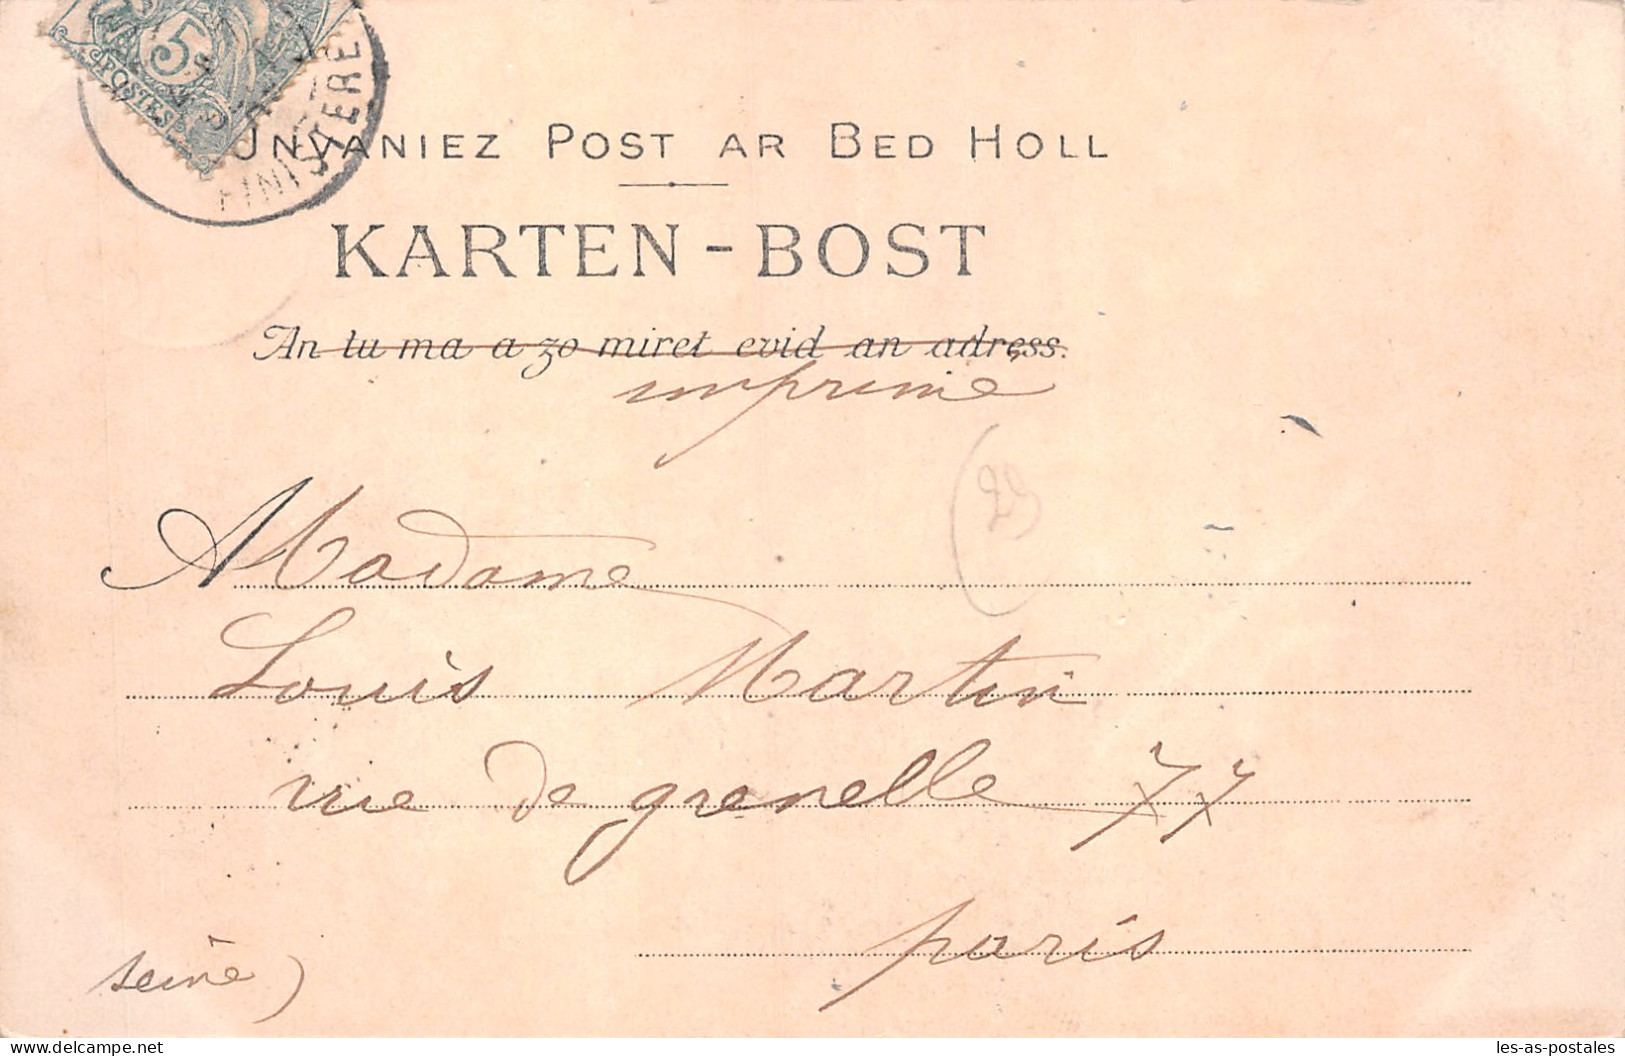 5
POSTES
FINISTERE
UNVANIEZ POST AR BED HOLL
KARTEN-BOST
An tu ma a zo miret evid an adress.
imprimé
(23
Madame
Louis Martin
rue de grenelle 77
paris
seine)
delcampe.net
les-as-postales